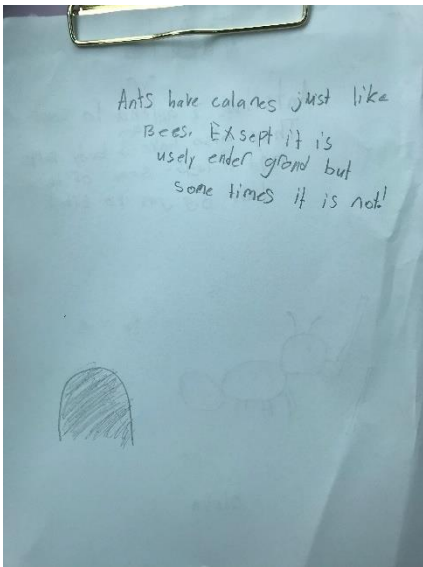 Ants have calanes just like
Bees. Exsept it is
usely ender grond but
some times it is not!